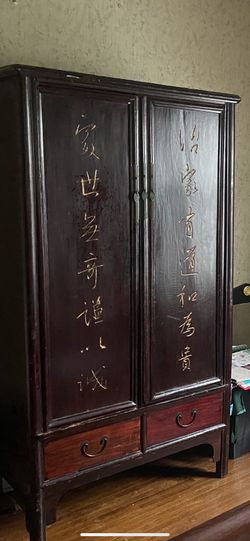 治家有道和為貴
處世無奇謙以誠